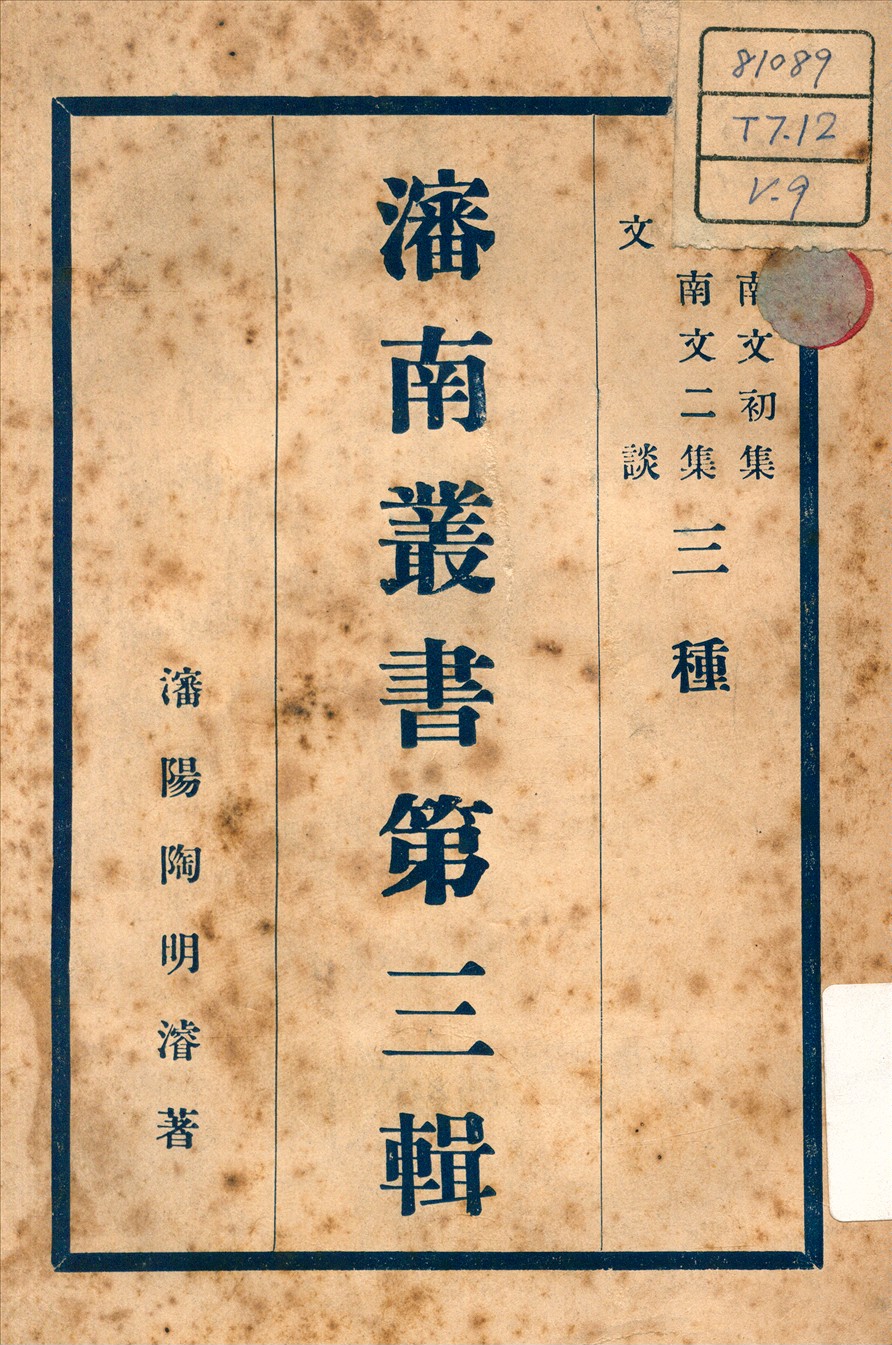 81089
T7.12
V.9
南文初集
南文二集
文談
三種
瀋南叢書第三輯
瀋陽陶明濬著